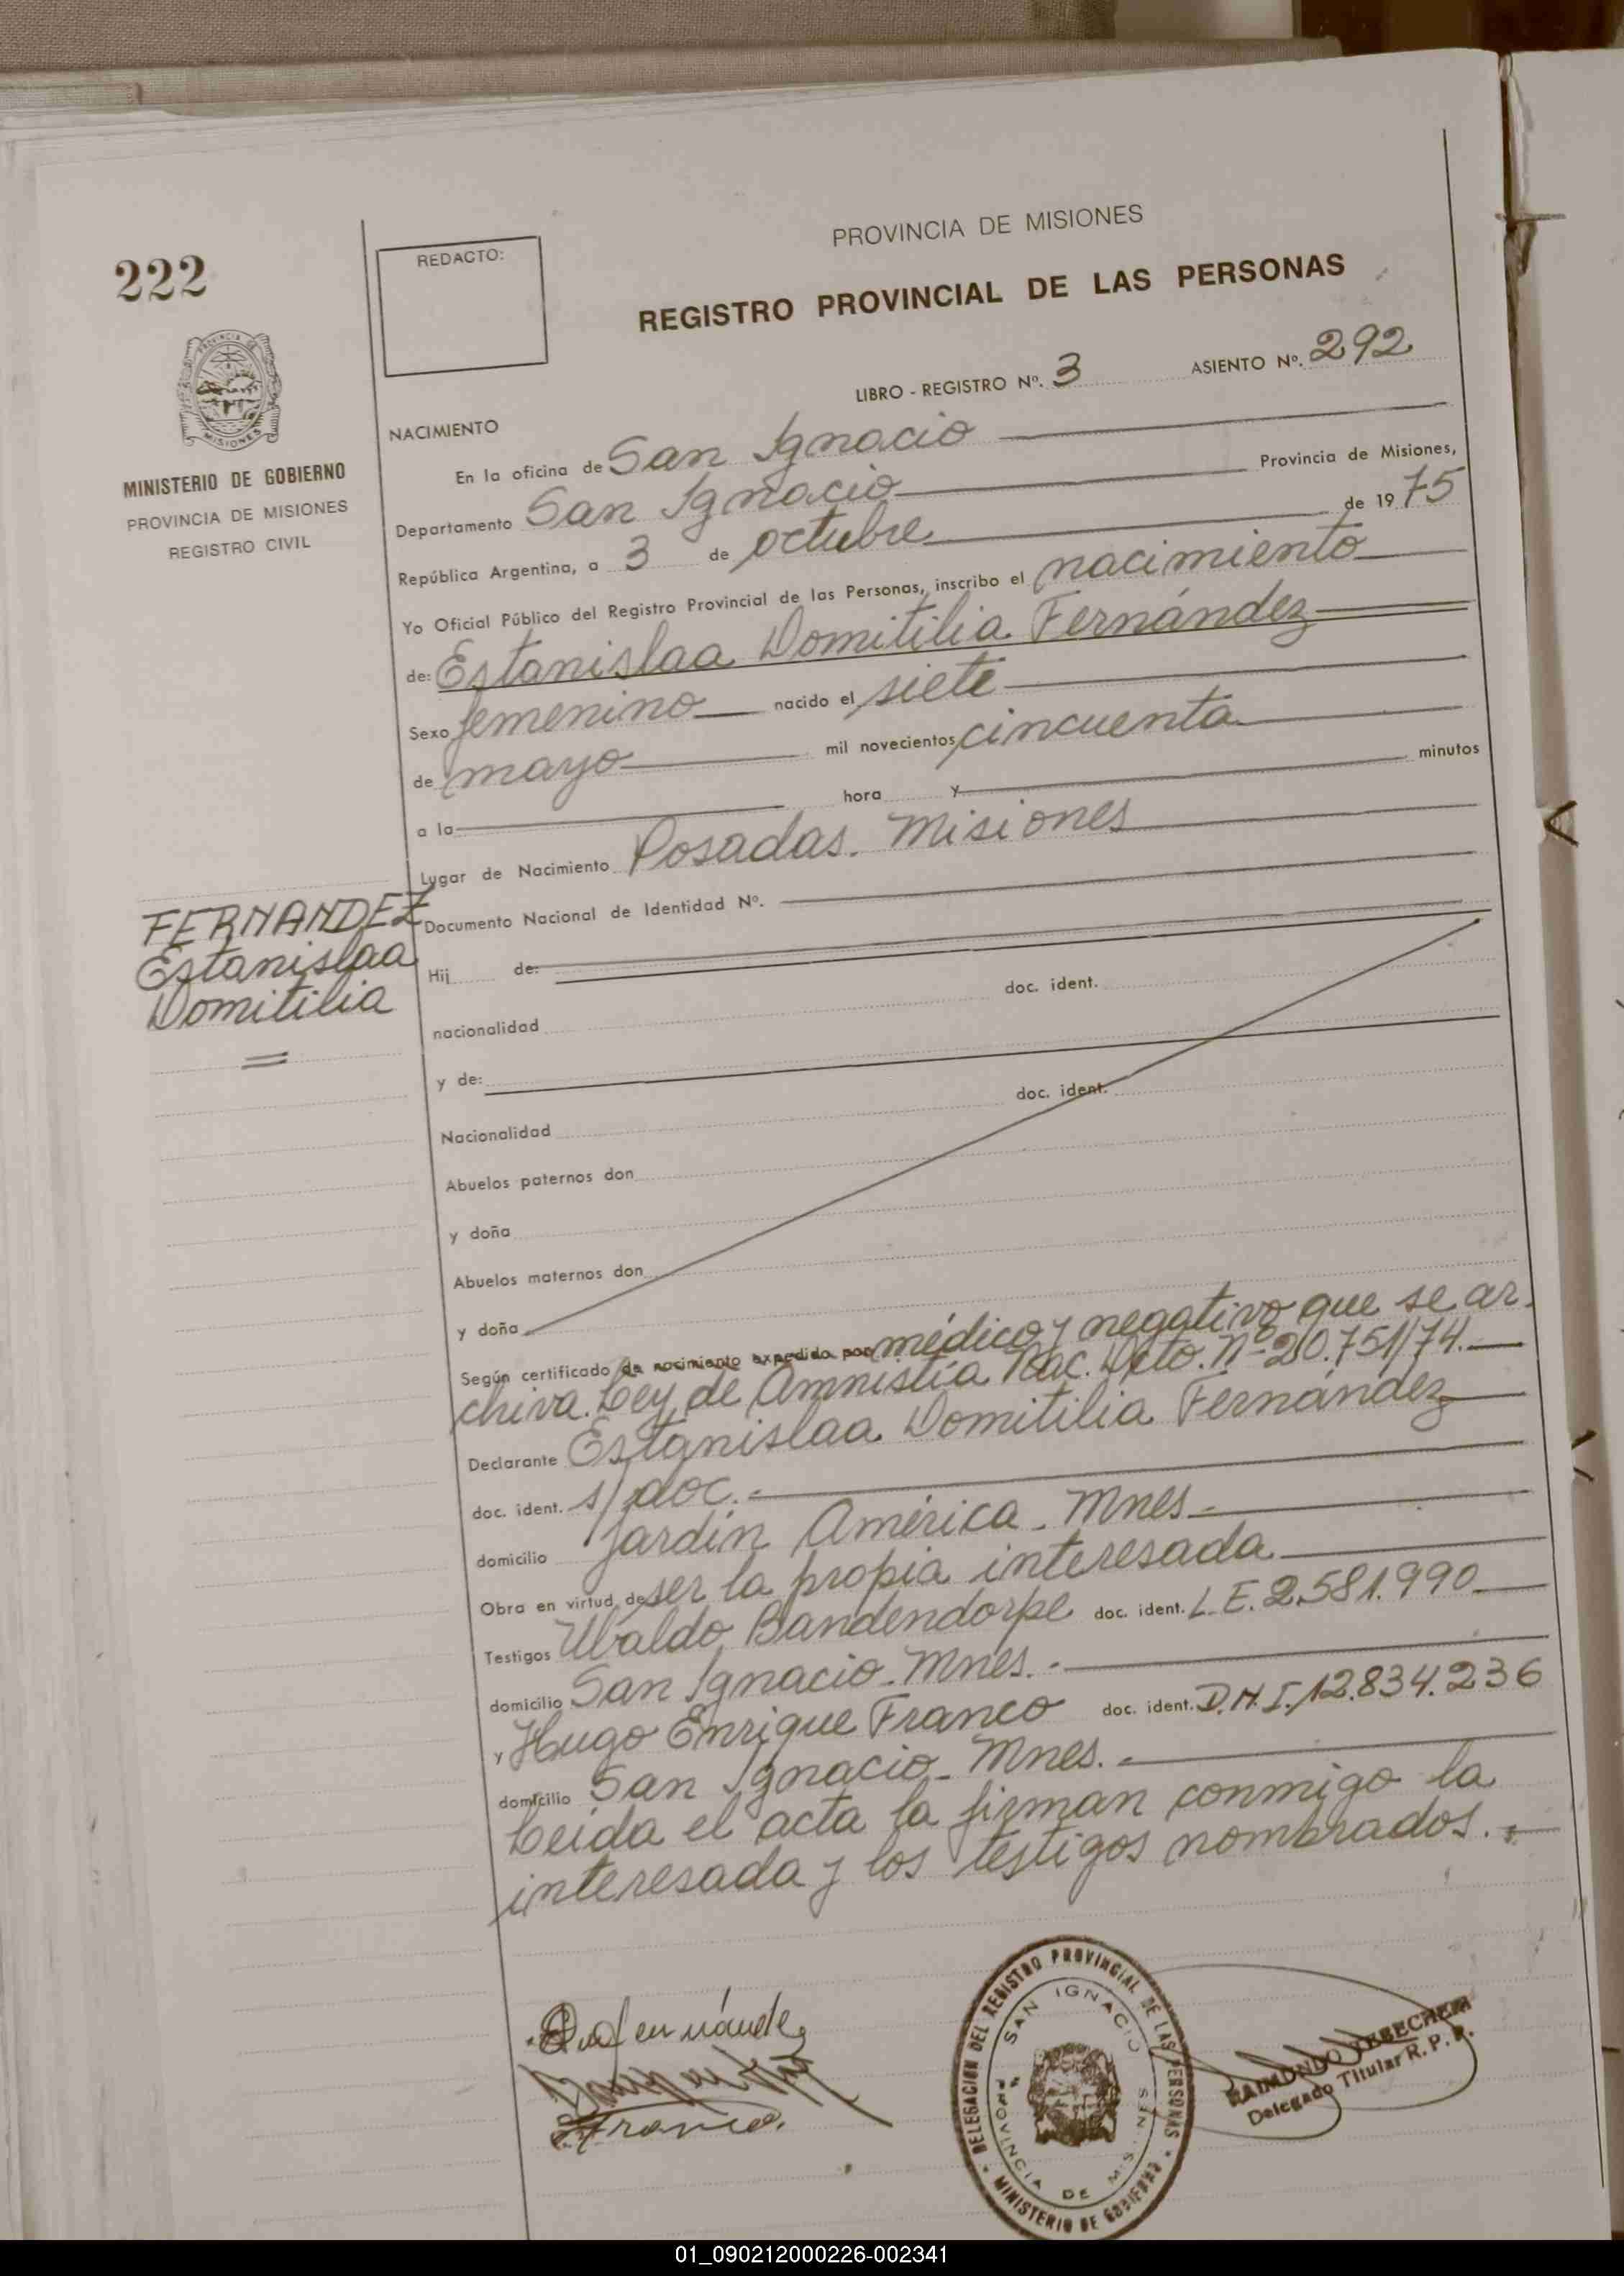 222
REDACTO:
PROVINCIA DE MISIONES
REGISTRO PROVINCIAL DE LAS PERSONAS
LIBRO - REGISTRO Nº. 3 ASIENTO Nº. 292
PROVINCIA DE
MISIONES
MINISTERIO DE GOBIERNO
PROVINCIA DE MISIONES
REGISTRO CIVIL
NACIMIENTO
En la oficina de San Ignacio
Departamento San Ignacio Provincia de Misiones,
República Argentina, a 3 de octubre de 1975
Yo Oficial Público del Registro Provincial de las Personas, inscribo el nacimiento
de: Estanislaa Domitilia Fernández
Sexo femenino nacido el siete
de mayo mil novecientos cincuenta
a la hora y minutos
Lugar de Nacimiento Posadas. Misiones
FERNANDEZ
Estanislaa
Domitilia
Documento Nacional de Identidad Nº.
Hij de:
nacionalidad doc. ident.
y de:
Nacionalidad doc. ident.
Abuelos paternos don
y doña
Abuelos maternos don
y doña
Según certificado de nacimiento expedido por médico y negativo que se ar
chiva. Ley de Amnistía Nac. Dcto. Nº 20.751/74.
Declarante Estanislaa Domitilia Fernández
doc. ident. s/doc.-
domicilio Jardín América - Mnes -
Obra en virtud de ser la propia interesada
Testigos Ubaldo Bandendorpe doc. ident. L.E. 2.581.990
domicilio San Ignacio - Mnes. -
y Hugo Enrique Franco doc. ident. D.N.I. 12.834.236
domicilio San Ignacio - Mnes. -
Leida el acta la firman conmigo la
interesada y los testigos nombrados. -
Franco.
DELEGACION DEL REGISTRO PROVINCIAL DE LAS PERSONAS
SAN IGNACIO
PROVINCIA DE MISIONES
MINISTERIO DE GOBIERNO
RAIMUNDO
Delegado Titular R. P. P.
01_090212000226-002341